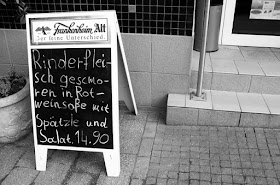 Frankenheim Alt
Der feine Unterschied.
Rinderflei-
sch geschmo-
ren in Rot-
weinsoße mit
Spätzle und
Salat. 14.90